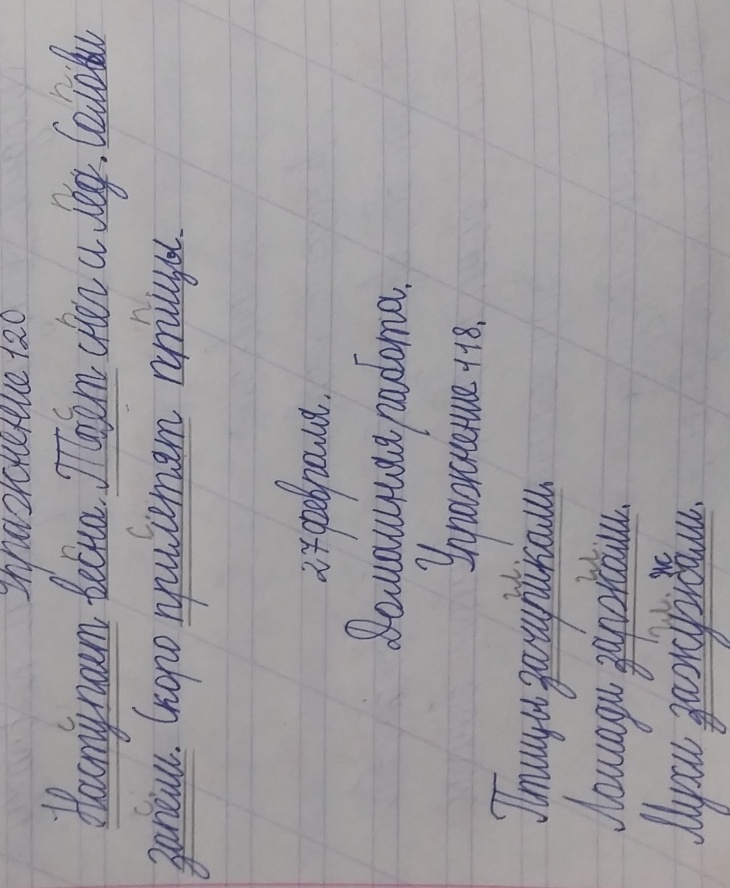 Упражнение 120
Наступает весна. Тает снег и лед. Соловьи
запели. Скоро прилетят птицы.
27 февраля.
Домашняя работа.
Упражнение 118.
Птицы зачирикали.
Лошади заржали.
Мухи зажужжали.